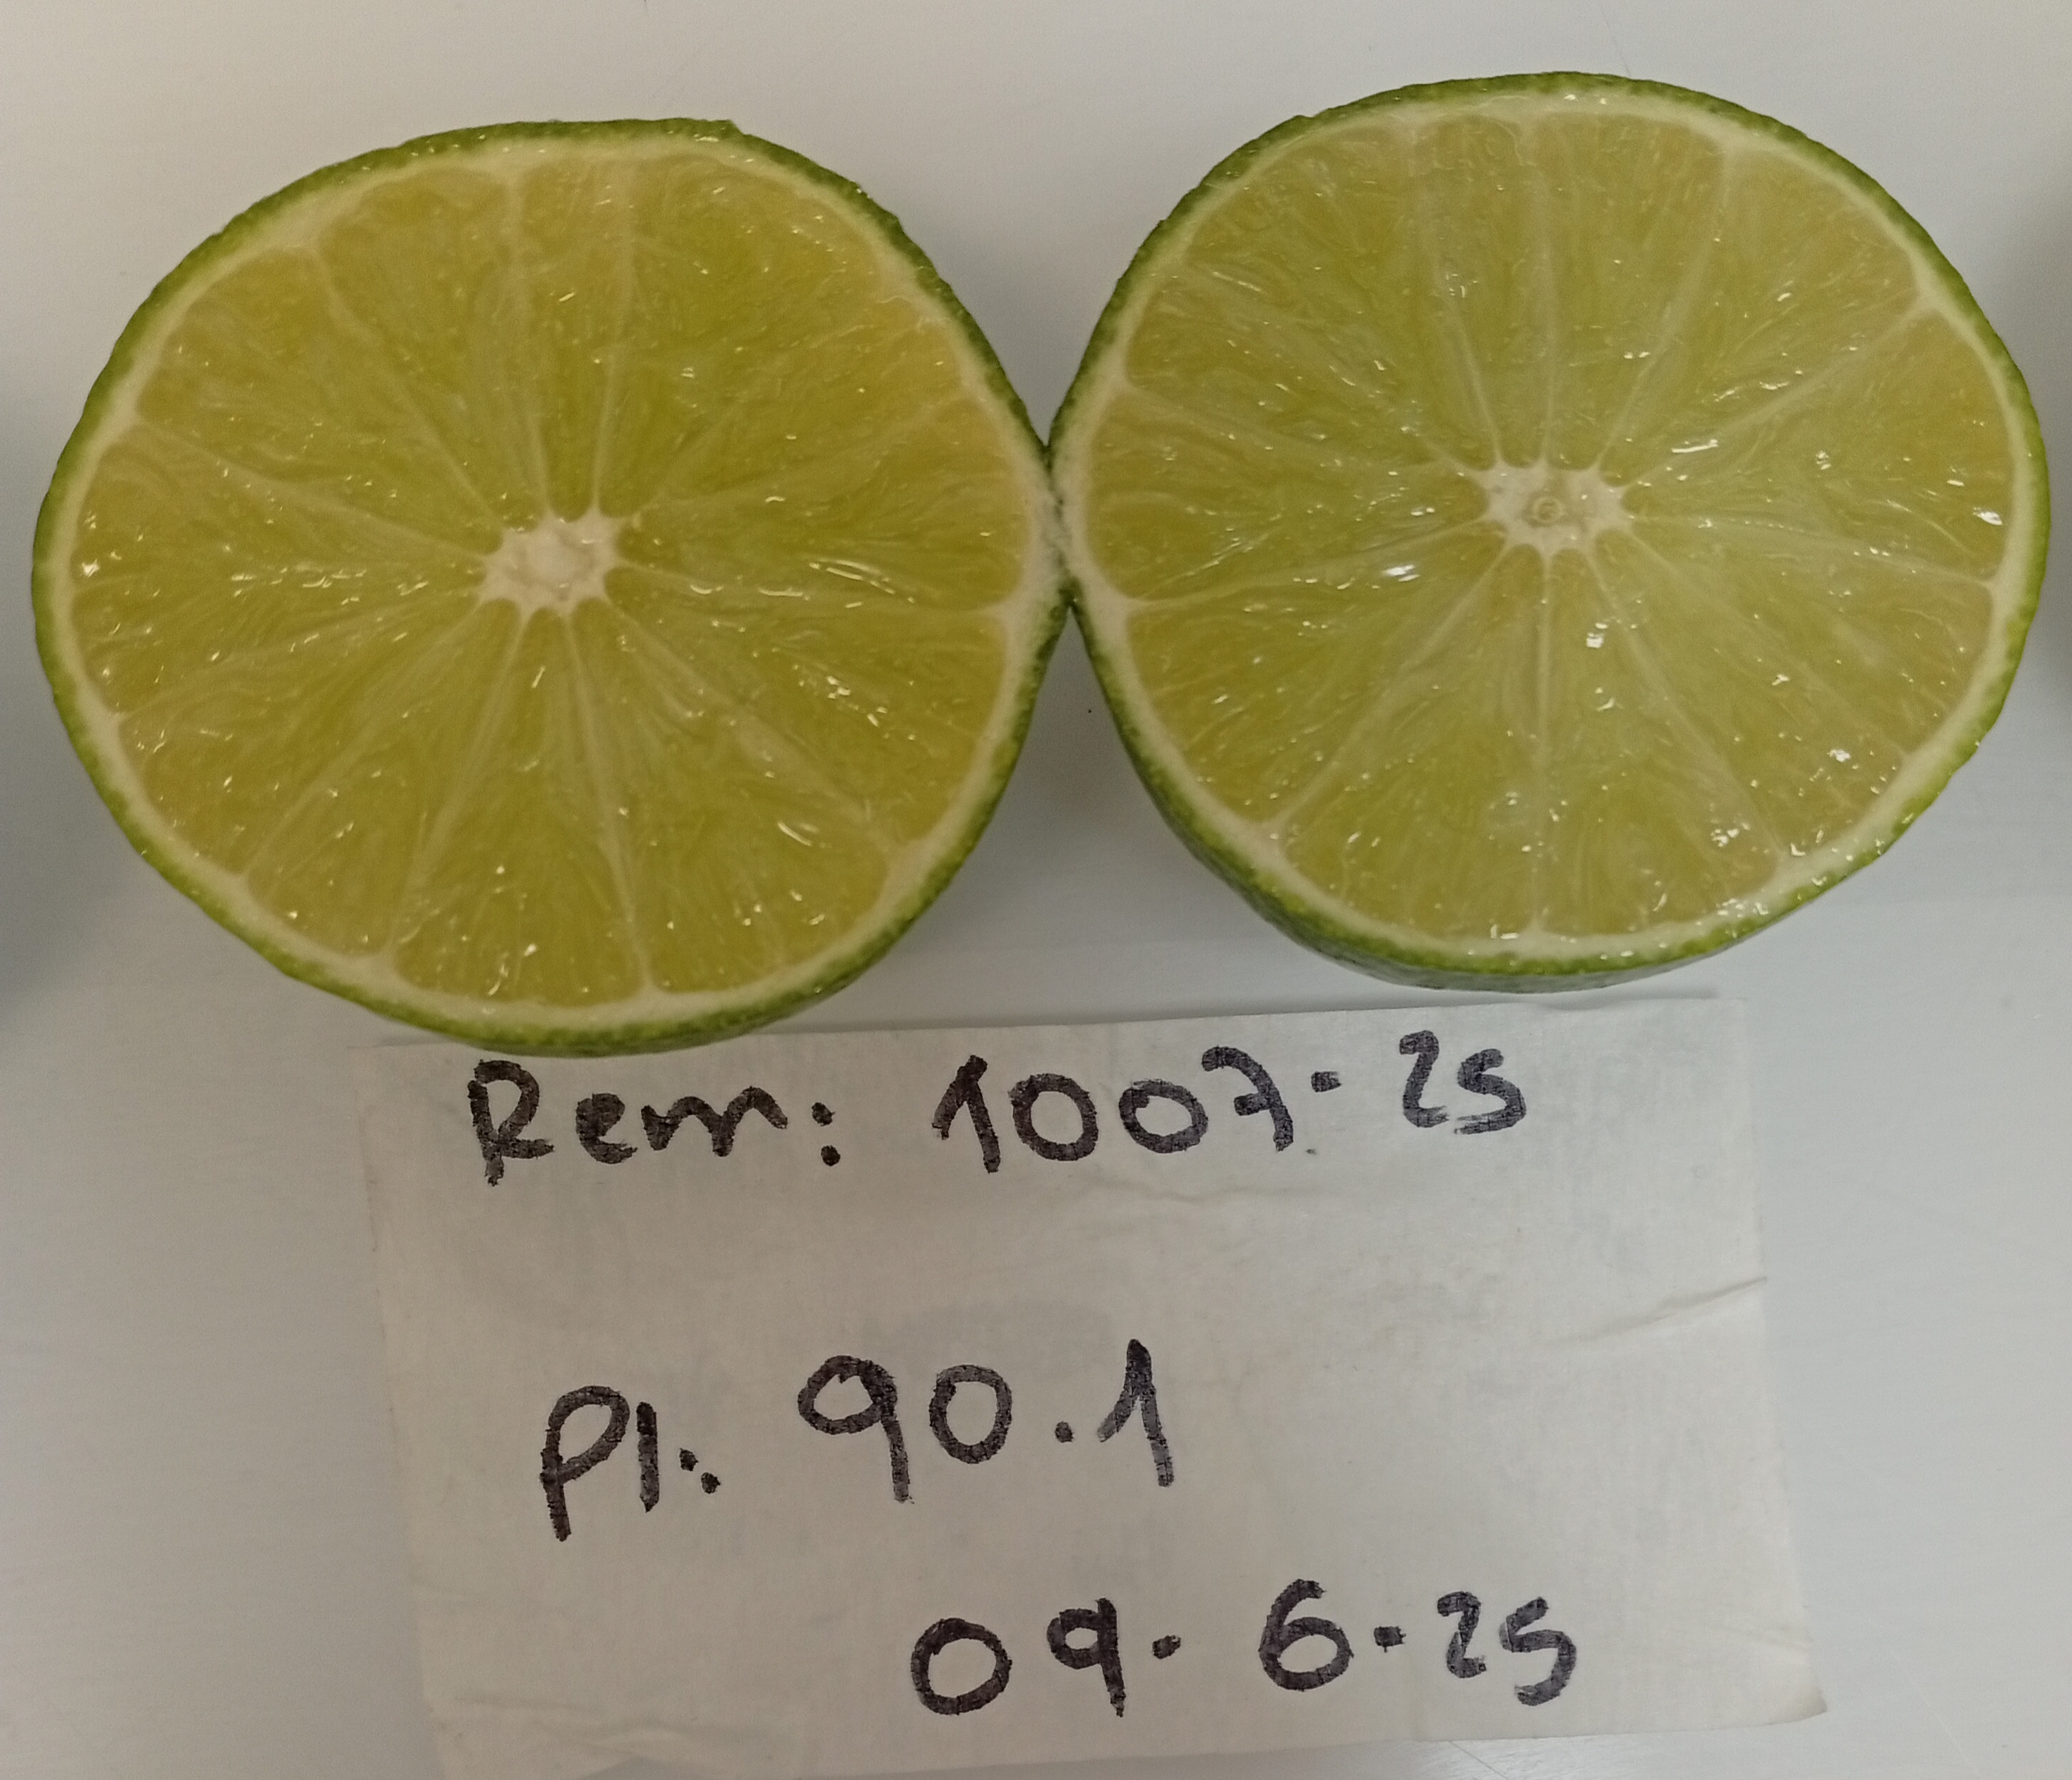 Rem: 1007-25
Pl: 90.1
09-6-25